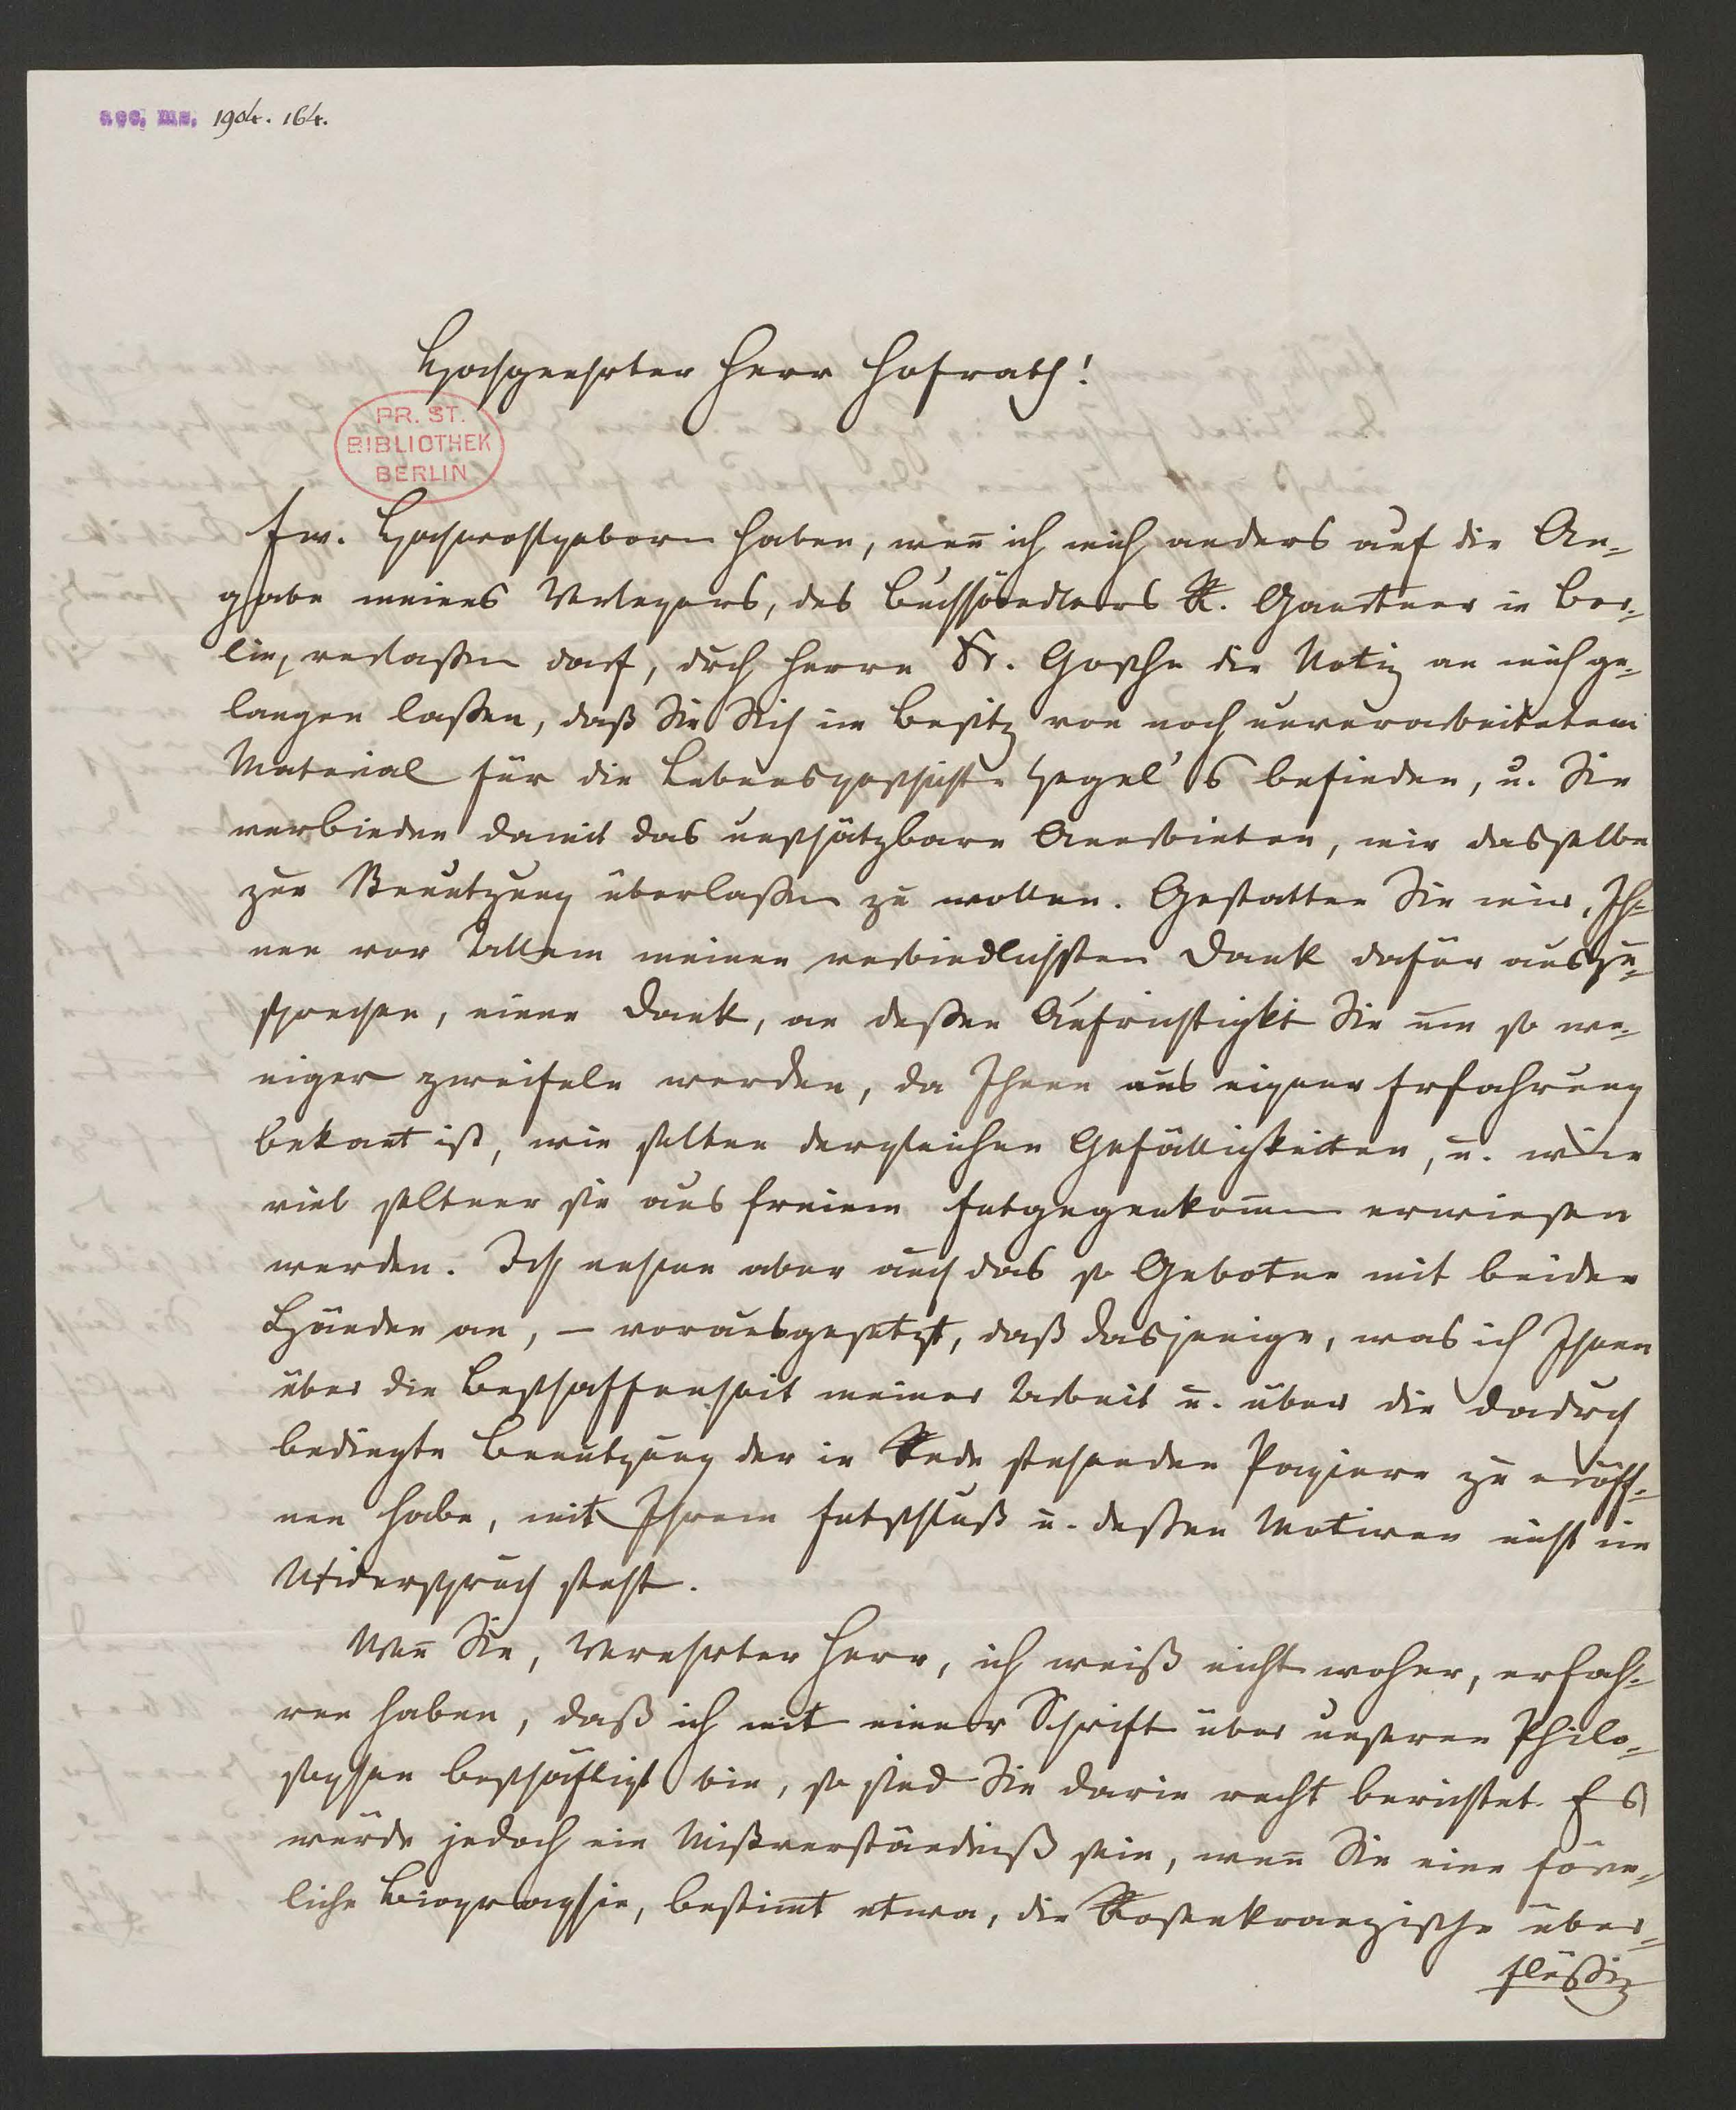 acc. ms. 1904. 164.
Hochgeehrter Herr Hofrath!
PR. ST.
BIBLIOTHEK
BERLIN
Ew. Hochwohlgeborn haben, weñ ich mich anders auf die An-
gabe meines Verlegers, des Buchhändlers R. Gaertner in Ber-
lin, verlaßen darf, durch Herrn Dr. Gosche die Notiz an mich ge-
langen laßen, daß Sie Sich im Besitz von noch unverarbeitetem
Material für die Lebensgeschichte Hegel's befinden, u. Sie
verbinden damit das unschätzbare Anerbieten, mir dasselbe
zur Benutzung überlaßen zu wollen. Gestatten Sie mir, Ih-
nen vor Allem meinen verbindlichsten Dank dafür auszu-
sprechen, einen Dank, an deßen Aufrichtigkeit Sie um so we-
niger zweifeln werden, da Ihnen aus eigner Erfahrung
bekañt ist, wie selten dergleichen Gefälligkeiten, u. wie
viel seltner sie aus freiem Entgegenkom̃en erwiesen
werden. Ich nehme aber auch das so Gebotne mit beiden
Händen an, – vorausgesetzt, daß dasjenige, was ich Ihnen
über die Beschaffenheit meiner Arbeit u. über die dadurch
bedingte Benutzung der in Rede stehenden Papiere zu eröff-
nen habe, mit Ihrem Entschluß u. deßen Motiven nicht im
Widerspruch steht.
Weñ Sie, Verehrter Herr, ich weiß nicht woher, erfah-
ren haben, daß ich mit einer Schrift über unseren Philo-
sophen beschäftigt bin, so sind Sie darin recht berichtet. Es
würde jedoch ein Mißverständniß sein, weñ Sie eine förm-
liche Biographie, bestim̃t etwa, die Rosenkranzische über-
flüßig